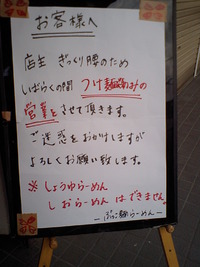 お客様へ
店主 ぎっくり腰のため
しばらくの間 つけ麺のみの
営業とさせて頂きます。
ご迷惑をおかけしますが
よろしくお願い致します。
※ しょうゆらーめん
しおらーめんはできません。
麺らーめん